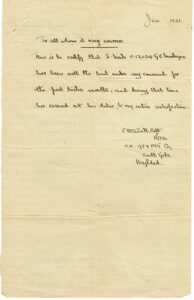 Jan 1921.
To all whom it may concern
This is to certify that S/Sgt
has been with the unit under my command for
the past twelve months, and during that time
has carried out his duties to my entire satisfaction.
Capt
RASC
M.T. Coy
South Gate
Baghdad.